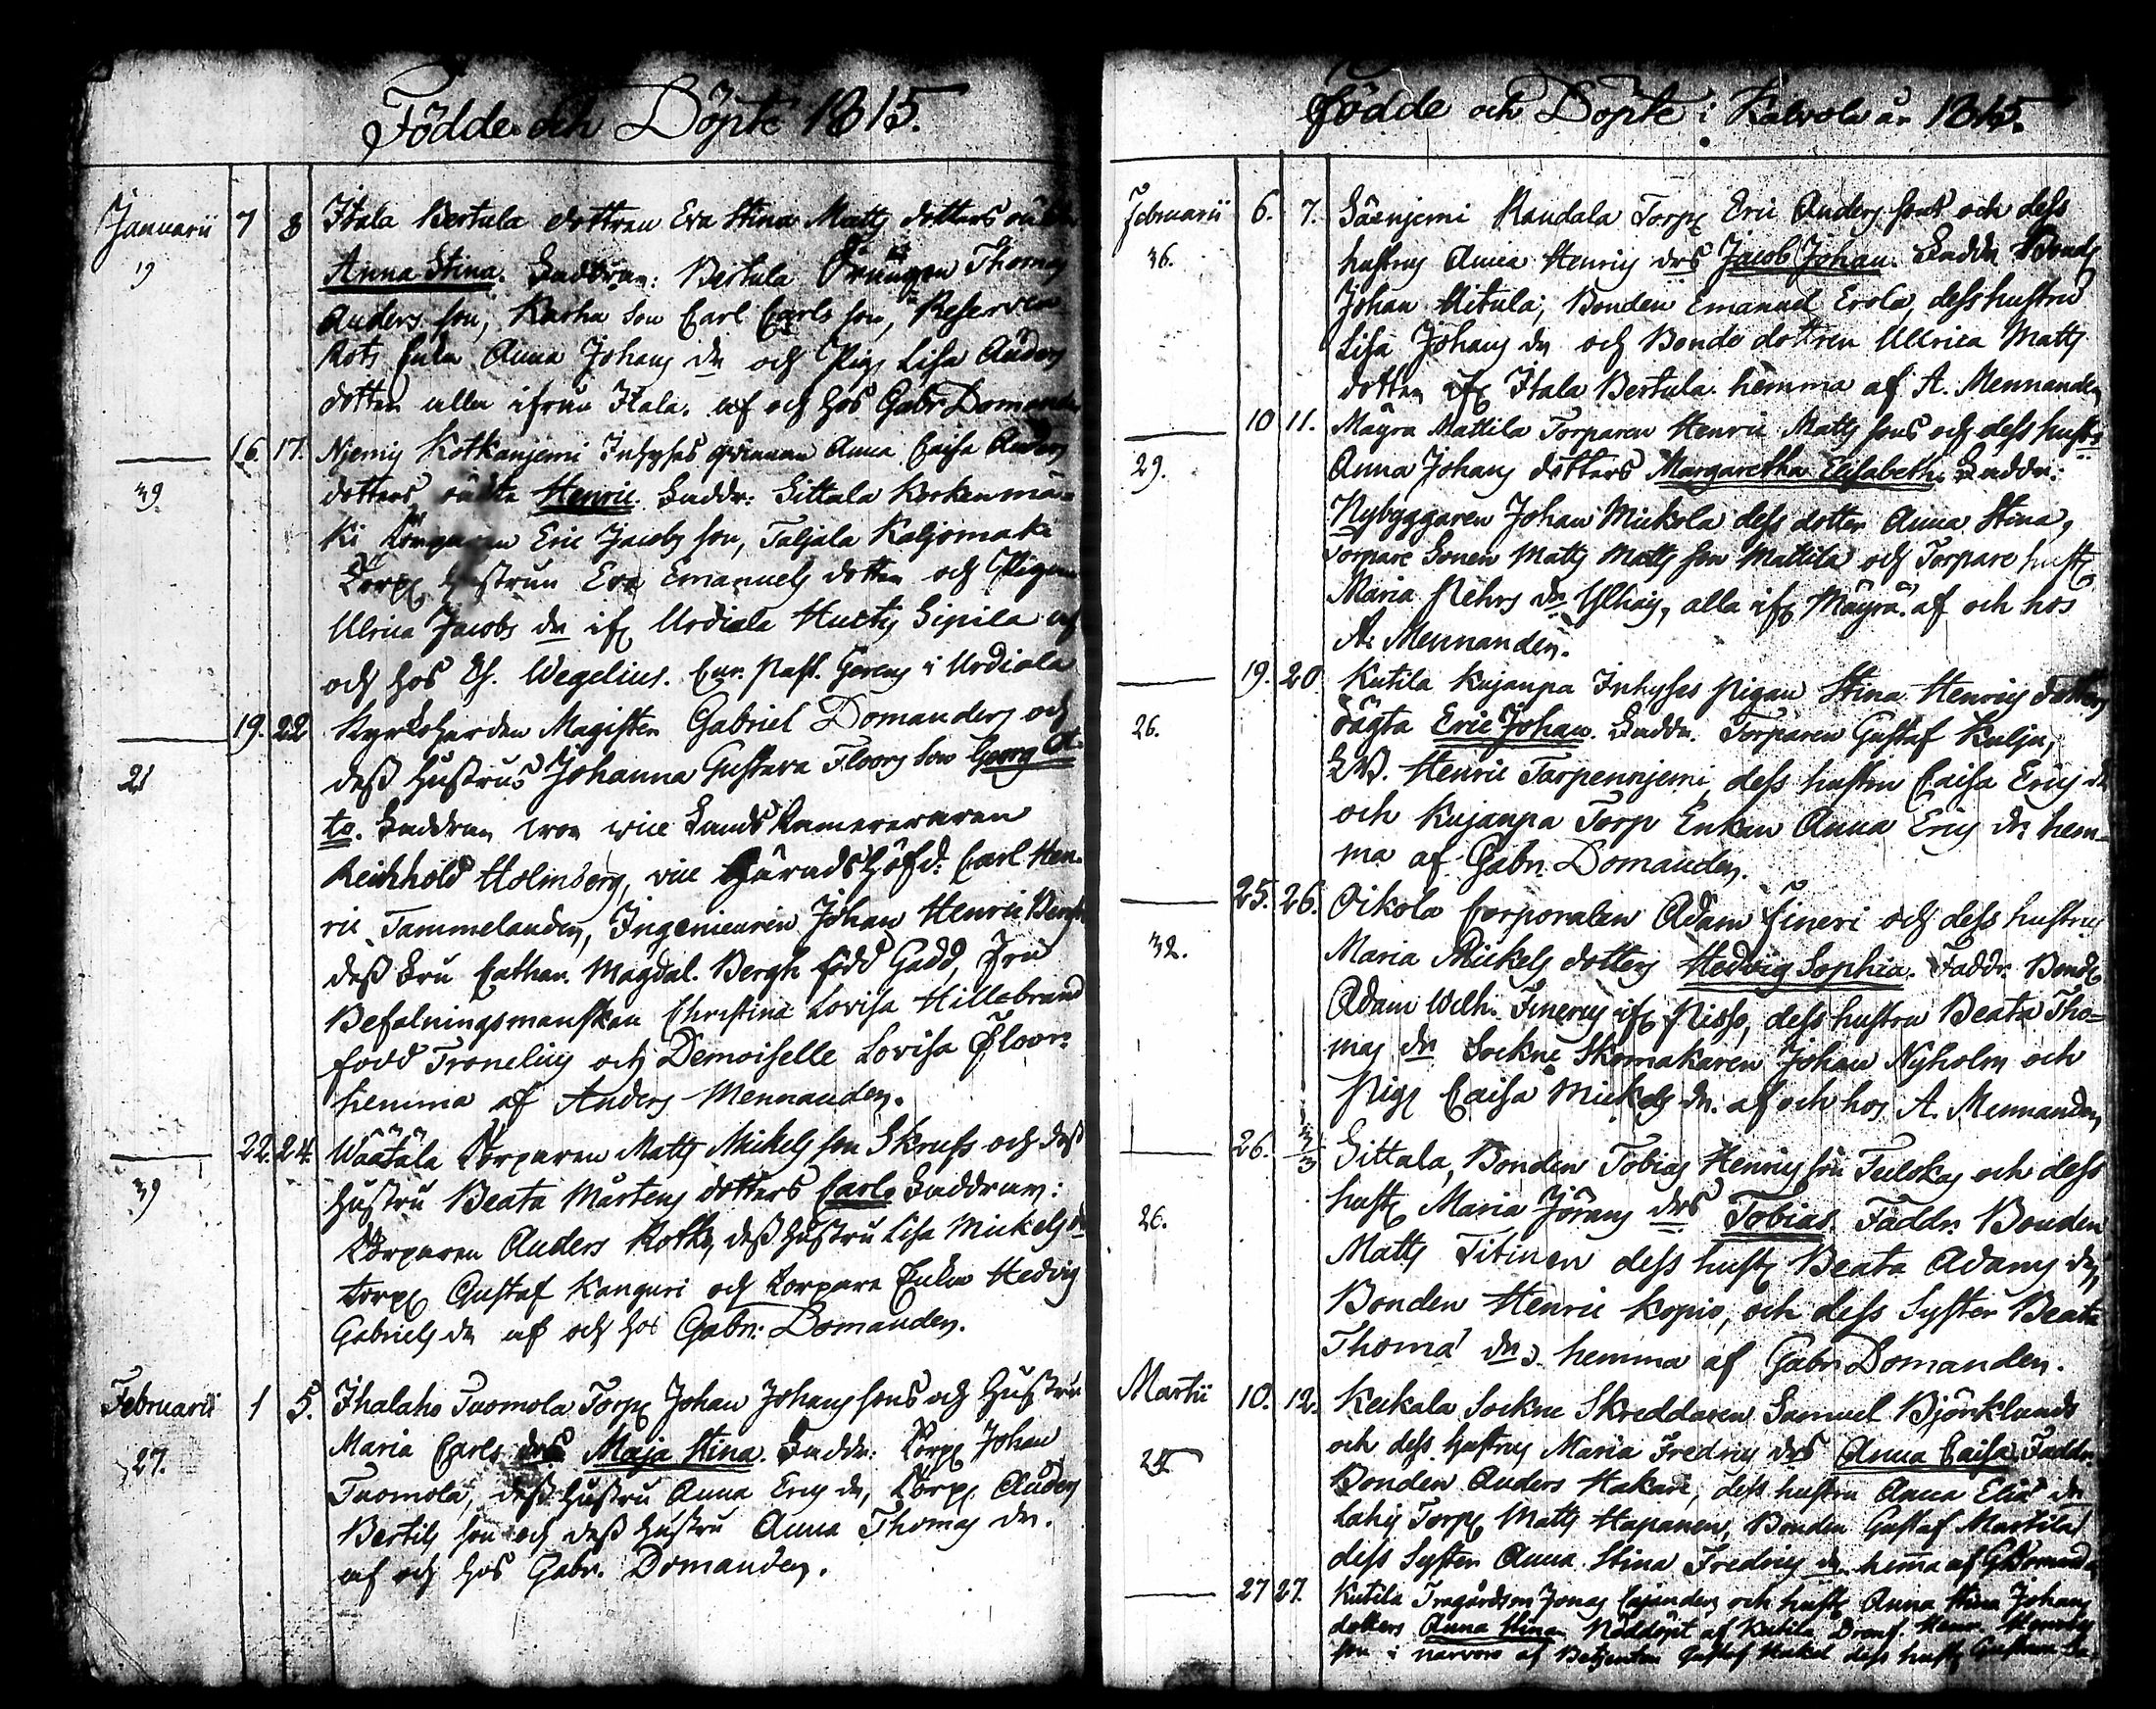 Födde och Döpte 1815.
Januarii 7 8 Itala Bertula dottren Eva Stina Matts dotters oäkta
19 Anna Stina. Faddran: Bertula Drängen Thomas
Anders son, Karha Son Carl Carls son, Reserven
Rots Enka Anna Johans dr och Pig. Lisa Anders
dotter alla ifrån Itala. af och hos Gabr. Domander
16. 17. Niemis Kotkanjemi Inhyses qvinnan Anna Caisa Anders
39. dotters oäckta Henric. Faddr: Sittala Korkenmä-
ki Torparen Eric Jacobs son, Taljala Kaljomaki
Torp. Hustrun Eva Emanuels dotter och Pigan
Ulrica Jacobs dr if. Urdiala Huctis Sipila af
och hos Wegelius. Past. i Urdiala
19. 22 Kyrkoherden Magister Gabriel Domanders och
21 dess Hustrus Johanna Gustava Floors Son Georg Ot-
to. Faddran woro vice Lands Kamereraren
Reinhold Holmberg, vice Häradshöfd: Carl Hen-
ric Tammelander, Ingenieuren Johan Henric Bergh
dess Fru Cathar. Magdal. Bergh född Gadd, Fru
Befalningsmanskan Christina Lovisa Hillebrand
född Tronelius och Demoiselle Lovisa Floor.
hemma af Anders Mennander.
22. 24. Wäätälä Torparen Matts Mickels son Skruf och dess
39 Hustru Beata Mårtens dotters Carl. Faddran:
Torparen Anders Kotka, dess hustru Lisa Mickels dr
torp. Gustaf Kanguri och Torpare Enkan Hedvig
Gabriels dr af och hos Gabr. Domander.
Februarii 1 5. Ihalahs Tuomola Torp. Johan Johans sons och Hustru
27. Maria Carls drs Maja Stina. Faddr: Torp. Johan
Tuomola, dess hustru Anna Erics dr, Torp. Anders
Bertils son och dess Hustru Anna Thomas dr.
af och hos Gabr. Domander.
Födde och Döpte i Kalvola år 1815.
Februarii 6. 7. Säenjemi Randala Torp. Eric Anders sons och dess
36. hustrus Anna Henrics drs Jacob Johan. Faddr.
Johan Hitula, Bonden Emanuel Erola, dess hustru
Lisa Johans dr och Bonde dottren Ullrica Matts
dotter if. Itala Bertula. hemma af A. Mennander
10 11. Mäyrä Mattila Torparen Henric Matts sons och dess hustr.
29. Anna Johans dotters Margaretha Elisabeth. Faddr:
Nybyggaren Johan Mickola dess dotter Anna Stina,
Torpare Sonen Matts Matts son Mattila och Torpare hust.
Maria Pehrs dr Ylhäis, alla if. Mäyrä. af och hos
A. Mennander.
19. 20. Kutila Kujanpä Inhyses pigan Stina Henrics dotters
26. oägta Eric Johan. Faddr. Torparen Gustaf Kulju,
Henric Tarpennjemi, dess hustru Caisa Erics dr
och Kujanpä Torp Enkan Anna Erics dr hem-
ma af Gabr. Domander.
25. 26. Oikola Corporalen Adam Fineri och dess hustrus
32. Maria Mickels dotters Hedvig Sophia. Faddr. Bond.
Adam Wilh. Finerus if. Niss, dess hustru Beata Tho-
mas dr Sockne Skomakaren Johan Nyholm och
Pig. Caisa Mickels dr. af och hos A. Mennander
26. 3/3 Sittala, Bonden Tobias Henrics son Tulokas och dess
26. hust. Maria Jörans drs Tobias. Faddr. Bonden
Matts Titinen dess hust. Beata Adams dr,
Bonden Henric Kopio, och dess Syster Beata
Thoma dr. hemma af Gabr. Domander.
Martii 10. 12. Keikala Sockne Skreddaren Samuel Björklunds
25 och dess hustrus Maria Fredrics drs Anna Caisa. Faddr.
Bonden Anders Hakari, dess hustru Anna Elia dr
Lahis Torp. Matts Hapanen, Bonden Gustaf Martila
dess Syster Anna Stina Fredrics dr. hema af G. Domander
27 27. Kutila Jonas Cajanders och hust. Anna Stina Johans
dotters Anna Stina. Nöddöpt af Kutila Henr. Henrics
son i närvaro af Betjenten Gustaf Hakel dess hust.